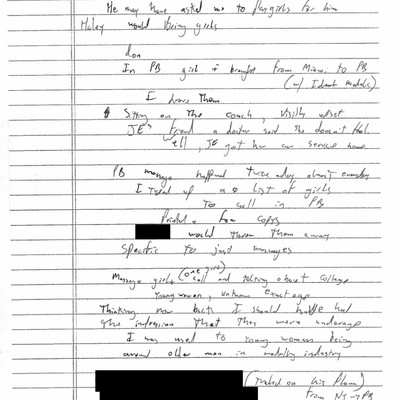 He may have asked me to play girls for him
Haley would bring girls
don
In PB girl I brought from Miami to PB
(w/ Ident models)
I drove them
Sitting on the couch, visibly upset
JE's friend a doctor said she doesn't feel
well, JE got her car service home
PB massage happened twice a day almost everyday
I typed up a list of girls
to call in PB
Printed a few copys
would throw them away
Specific to just massages
Massage girls (one girl) call and talking about college
Young women, unknown exact age
Thinking now back I should have had
the impression that they were underage
I was used to young women being
around older men in modeling industry
(Traveled on his plane)
from NY → PB